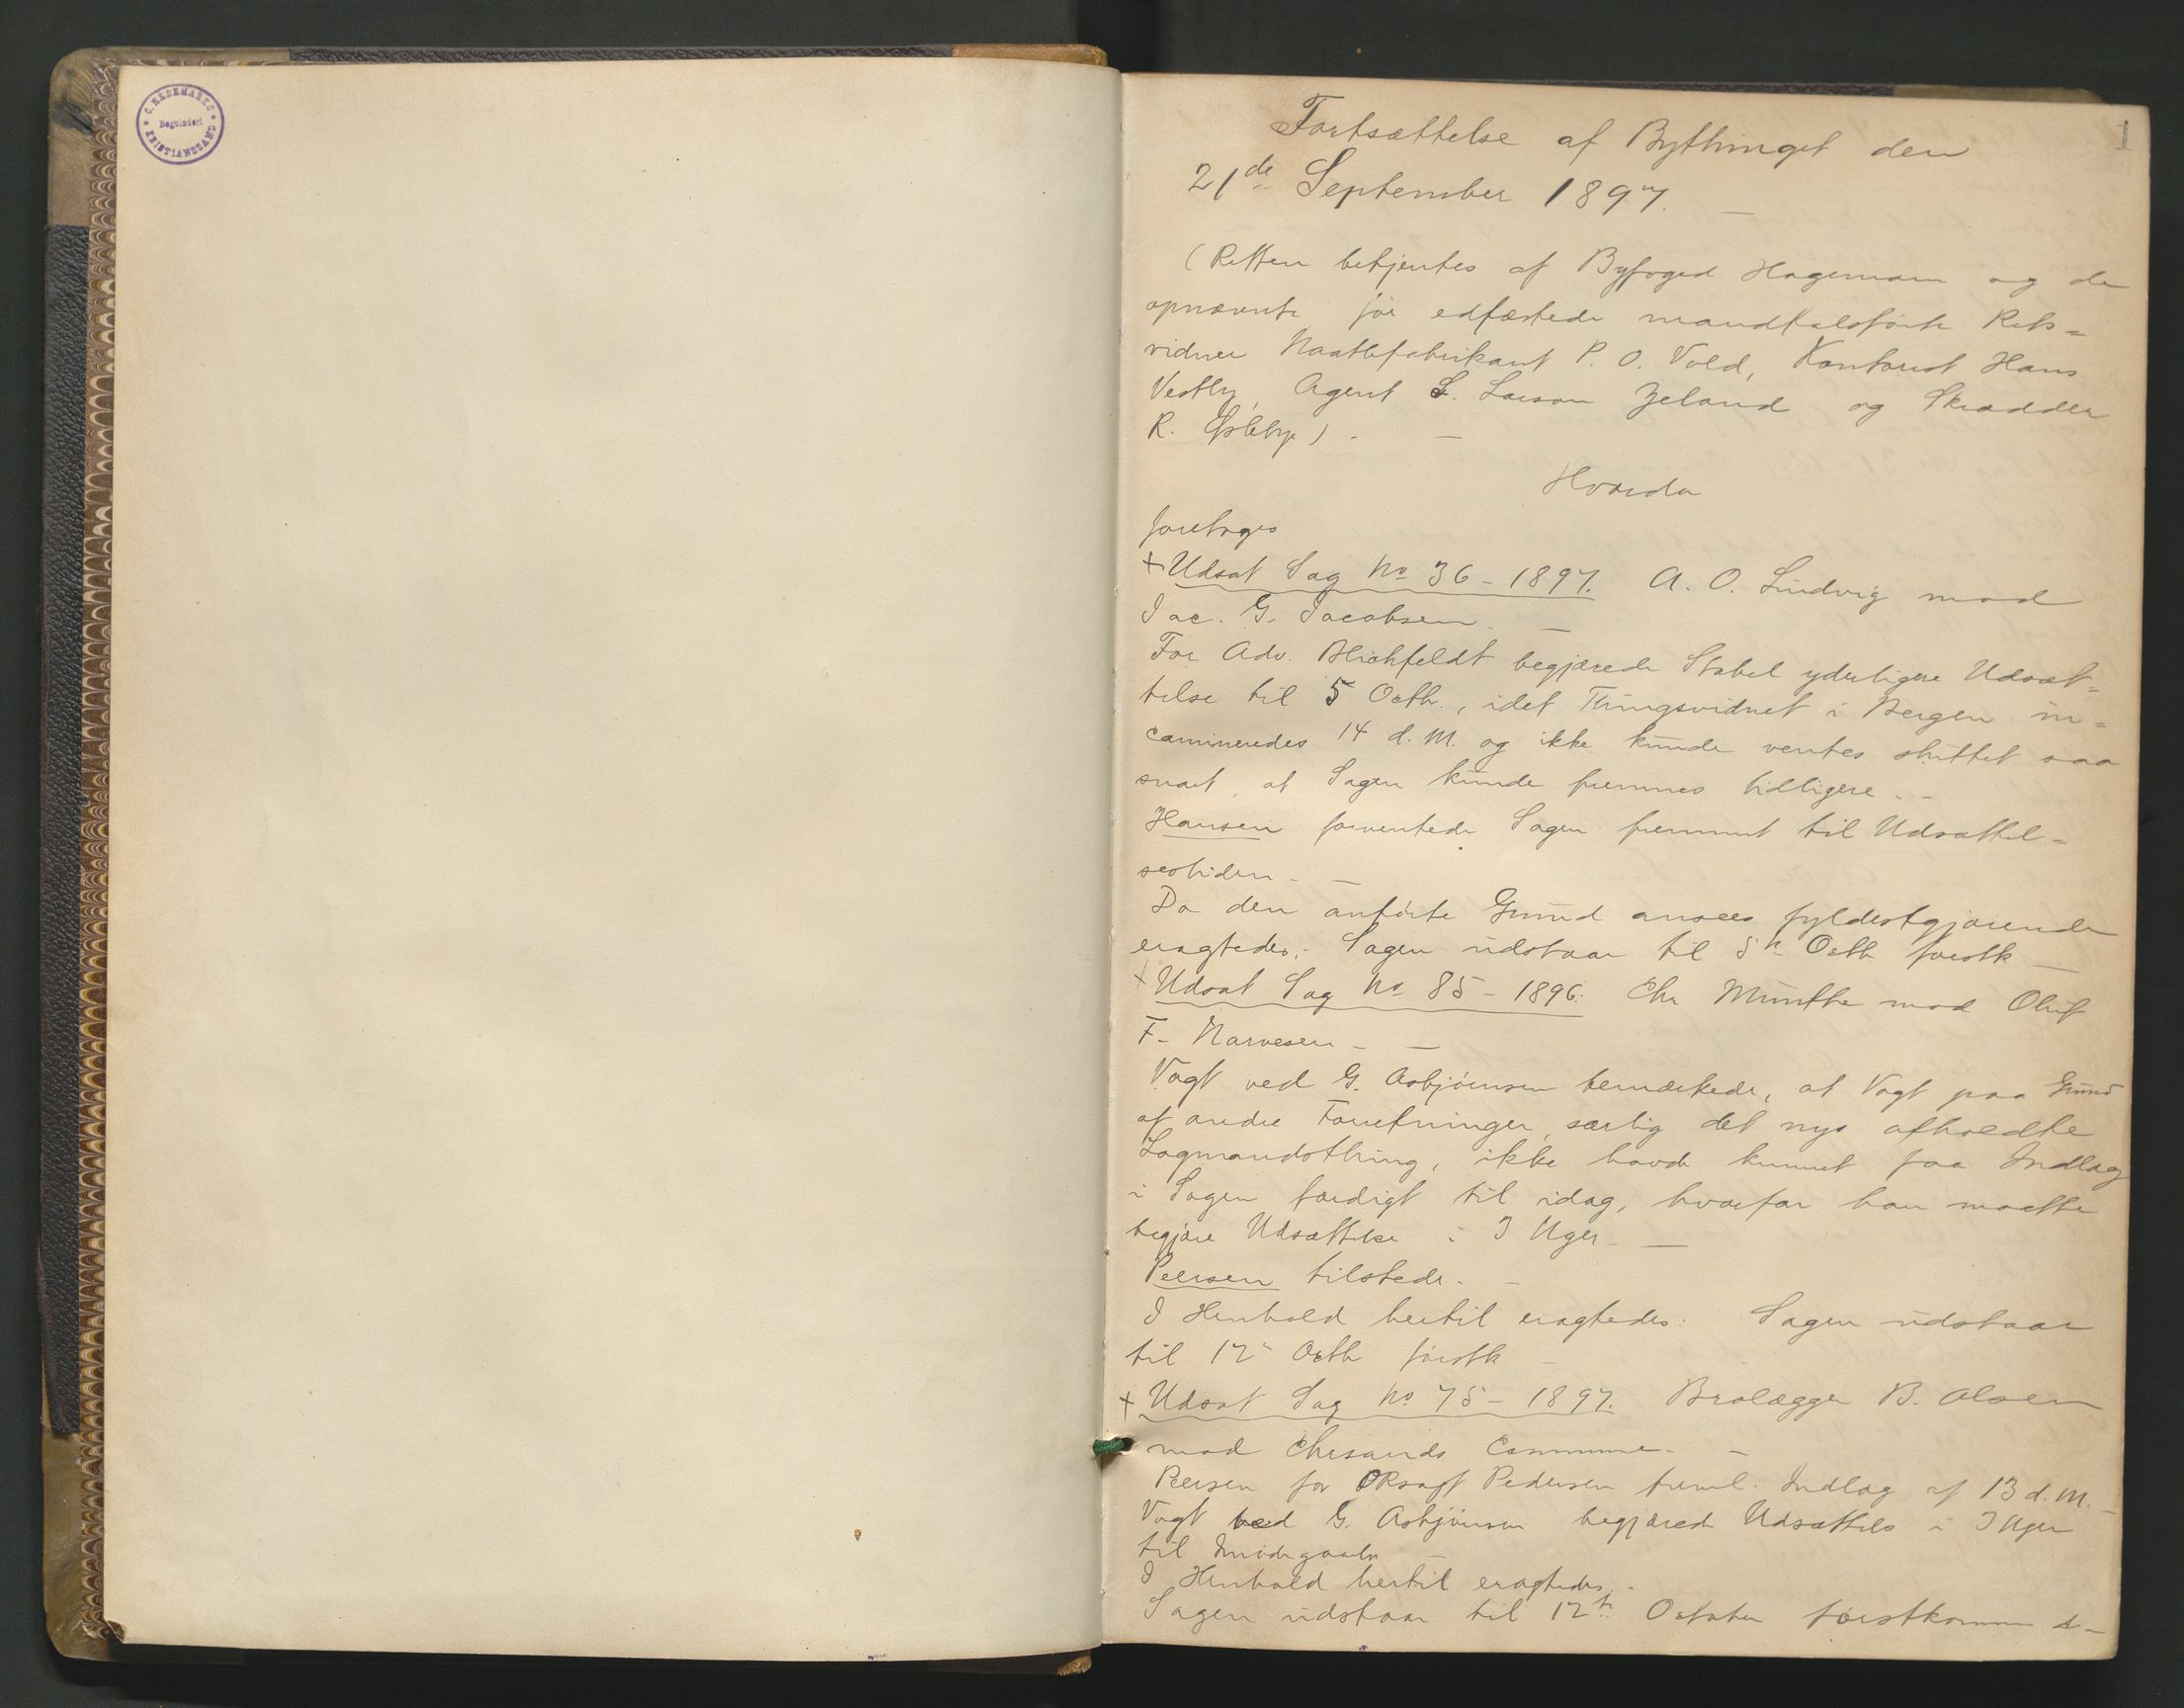 C. REDEMARKS
Bogbinderi
KRISTIANSSAND
1
Fortsættelse af Bythinget den
21de September 1897.
(Retten betjentes af Byfoged Hagemann og de
opnævnte før edfæstede mandtalsførte Rets=
vidner P. O. Vold, Kontorist Hans
Vestly, Agent S. Larsen Jeland og Skrædder
R.
Hvorda
foretoges
+ Udsat Sag No 36 - 1897. A. O. Lindvig mod
Jac. G. Jacobsen. —
For Adv. Blichfeldt begjærede Stabel yderligere Udsæt=
telse til 5 Octb., idet Thingsvidnet i Bergen in=
camineredes 14 d. M. og ikke kunde ventes sluttet saa
snart, at Sagen kunde fremmes tidligere. -
Hansen forventede Sagen fremmet til Udsættel=
sestiden. —
Da den anførte Grund ansees fyldestgjørende
eragtedes: Sagen udstaar til 5te Octb førstk —
+ Udsat Sag No 85 - 1896. Chr Munthe mod Oluf
F. Narvesen - —
Vogt ved G. Asbjørnsen bemærkede, at Vogt paa Grund
af andre Forretninger, særlig det nys afholdte
Lagmandsthing, ikke havde kunnet faa Indlæg
i Sagen færdigt til idag, hvorfor han maatte
begjære Udsættelse i 3 Uger. —
Peersen tilstede. -
I Henhold hertil eragtedes: Sagen udstaar
til 12te Octb førstk -
+ Udsat Sag No 75 - 1897. Brolægger B. Olsen
mod Chrsands Commune. -
Peersen for ORsagf Pedersen freml. Indlæg af 13 d. M. -
Vogt ved G. Asbjørnsen begjærede Udsættelse i 3 Uger
til Imødegaaelse —
I Henhold hertil eragtedes. -
Sagen udstaar til 12te October førstkommende -